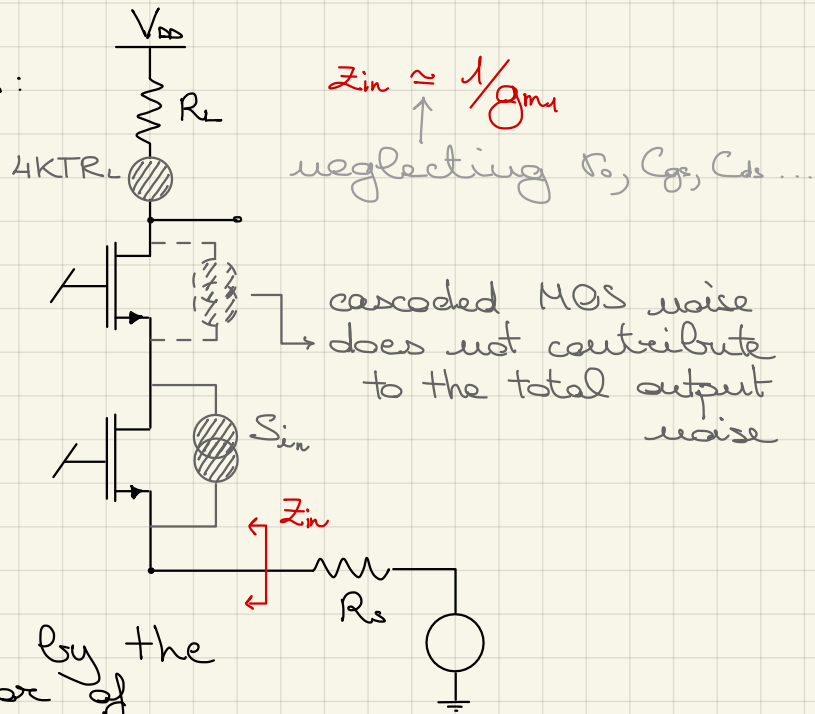 V_DD
:
Z_in ≃ 1/g_m1
R_L
4KTR_L
neglecting r_o, C_gs, C_ds ....
cascoded MOS noise
does not contribute
to the total output
noise
S_in
Z_in
R_s
by the
or of